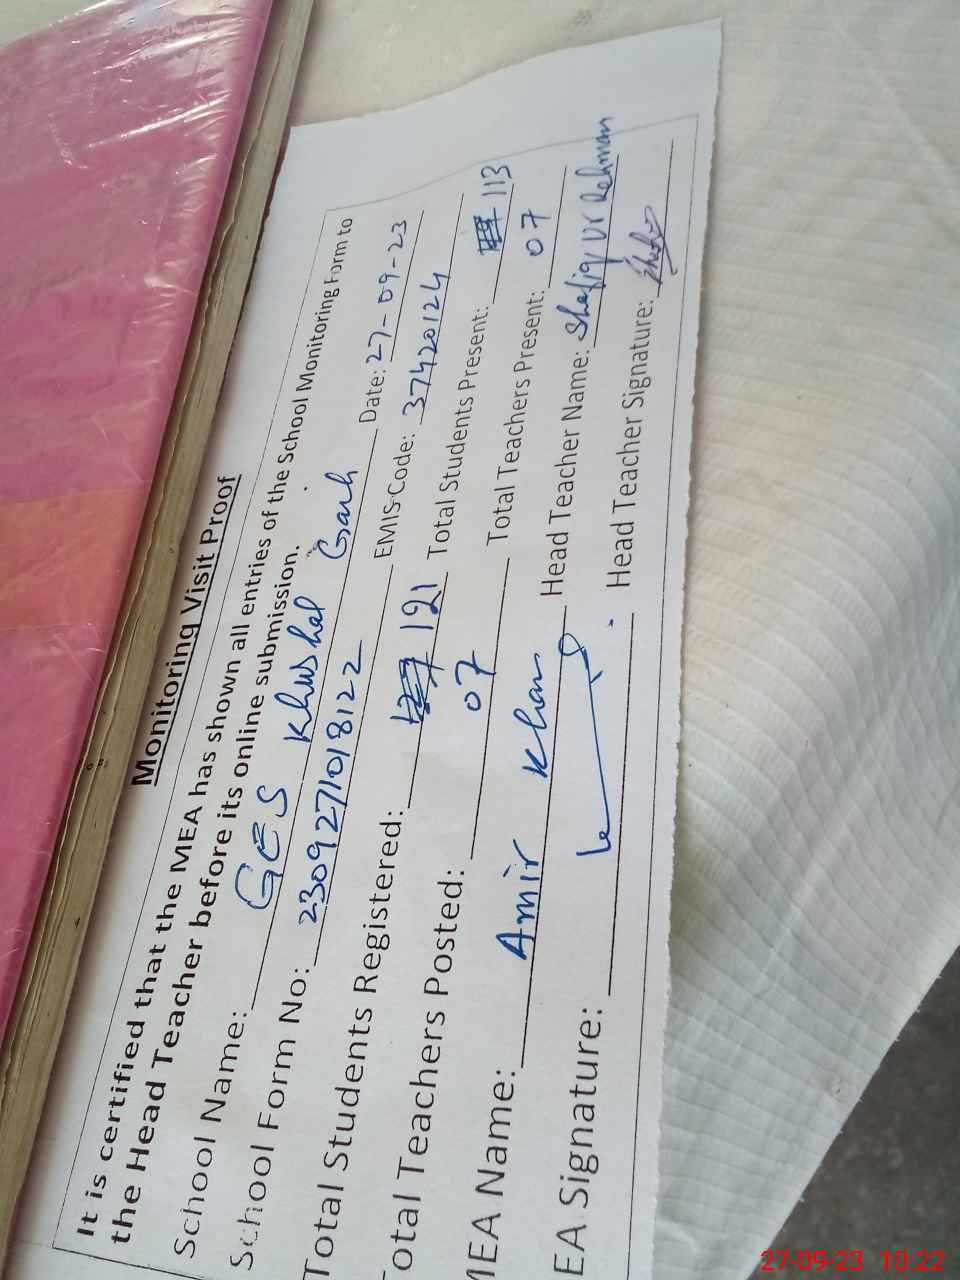 Monitoring Visit Proof
It is certified that the MEA has shown all entries of the School Monitoring Form to
the Head Teacher before its online submission.
School Name: GES Khushal Garh Date: 27-09-23
School Form No: 230927101 8122 EMIS Code: 37420124
Total Students Registered: 121 Total Students Present: 113
Total Teachers Posted: 07 Total Teachers Present: 07
MEA Name: Amir Khan Head Teacher Name: Shafiq ur Rehman
EA Signature: Head Teacher Signature:
27-09-23 10:22